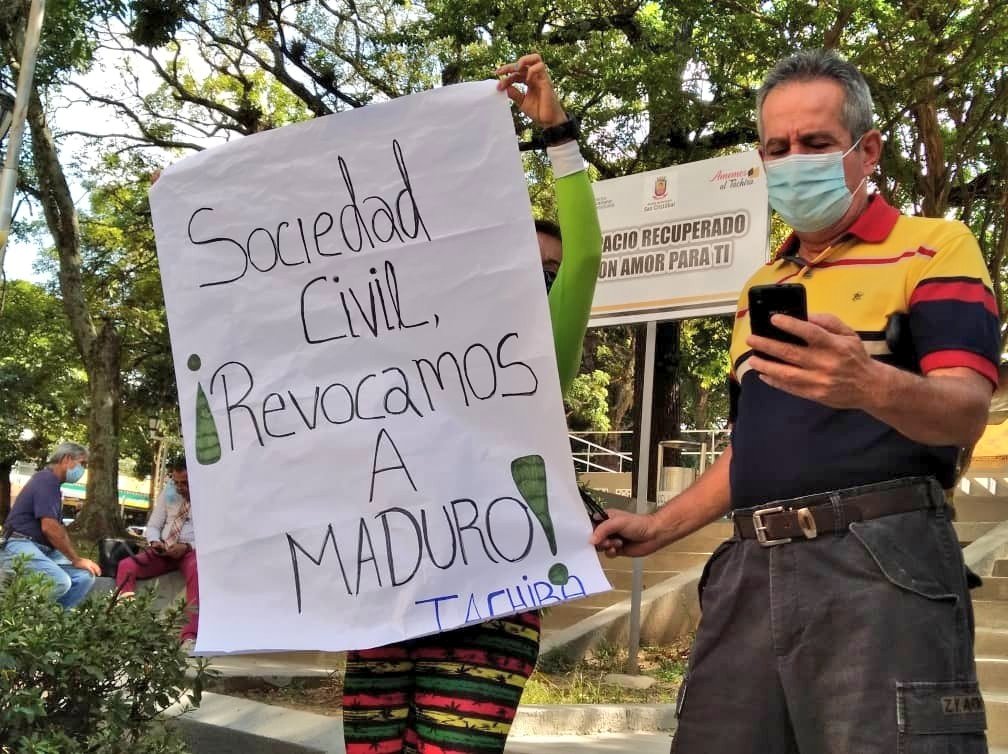 Sociedad
Civil,
¡Revocamos
A
MADURO!
TACHIRA
Amemos
al Táchira
San Cristóbal
PACIO RECUPERADO
ON AMOR PARA TI